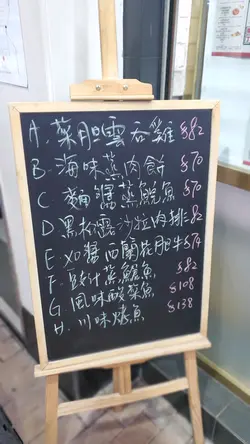 A. 雲吞雞 $82
B. 海味蒸肉餅 $70
C 麵醬蒸鯇魚 $70
D 黑松露沙拉肉排 82
E XO醬西蘭花肥牛 $74
F. 豉汁蒸魚 $82
G 風味酸菜魚 $108
H. 川味烤魚 $138